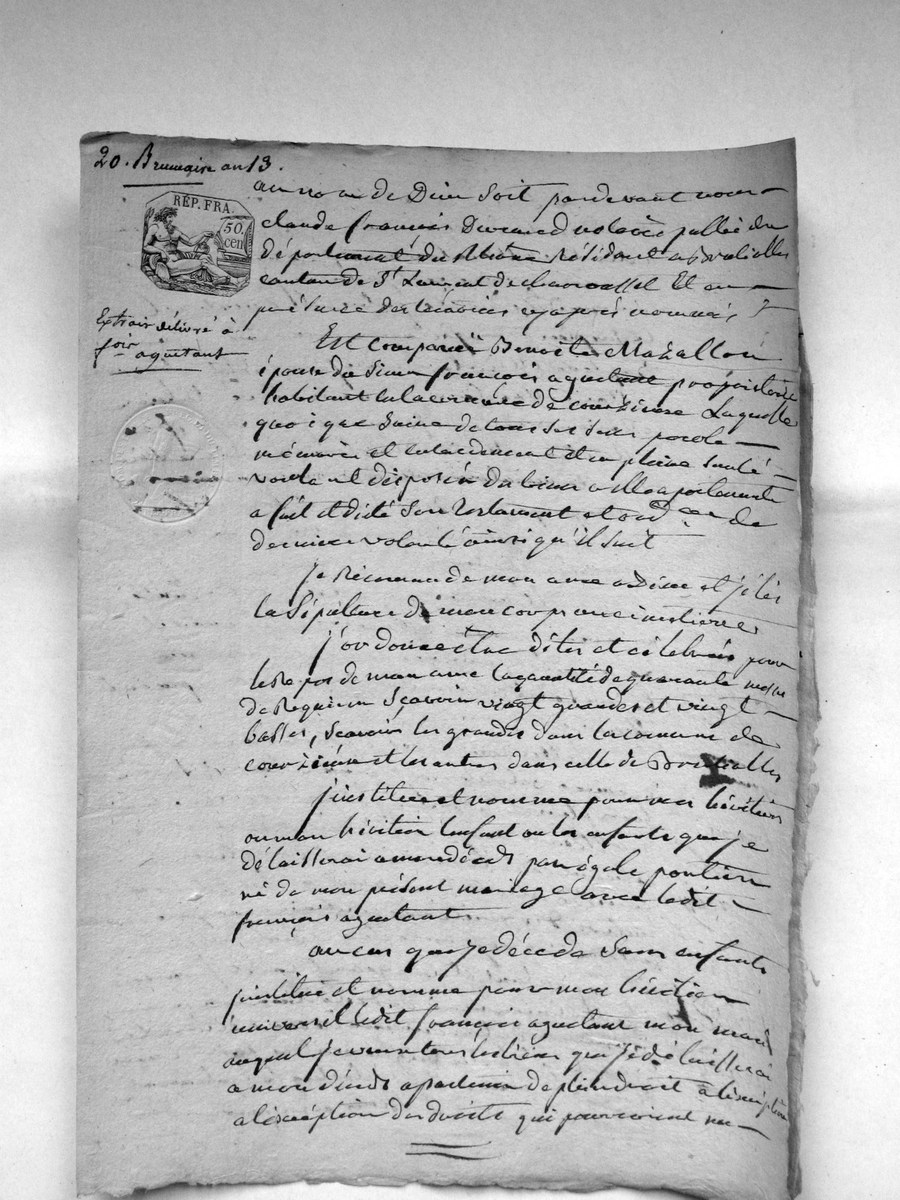 20. Brumaire an 13.
RÉP. FRA.
50.
cen
Extrait délivré à
aguetant
au nom de Dieu soit pardevant nous
claude françois notaire public du
département du Rhône Résident a Brulioles
canton de St Laurent de chamousset Et en
présence des témoins cyaprès nommés
Est comparüe Benoite Mazallon
épouse du Sieur françois aguetant propriétaire
habitant en la commune de courzieux Laquelle
quoique Saine de tous ses sens parole
mémoire et entendement et en pleine santé
voulant disposer du bien a elle apartenant
a fait et dicté Son testament et ord.ce de
dernière volonté ainsi qu'il suit
je Recommande mon ame a Dieu et
la Sépulture de mon corps
j'ordonne être dites et célébrées pour
le Repos de mon ame la quantité de quarante messes
de Requiem Sçavoir vingt grandes et vingt
basses, Scavoir les grandes dans la comune de
courzieux et les autres dans celle de Brulioles
j'institue et nomme pour mes héritiers
ou mon héritier lenfant ou les enfants que je
délaisserai a mon décès par égale portion
né de mon présent mariage avec ledit
françois aguetant
au cas que je décede Sans enfants
j'institue et nomme pour mon héritier
universel ledit françois aguetant mon mari
auquel je veux tous les biens que je délaisserai
a mon décès apartenir de plein droit à l'exception
a l'exception des droits qui pourroient